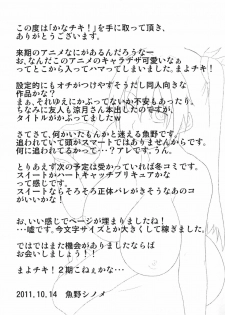 この度は「かなチキ！」を手に取って頂き、
ありがとうございます。
来期のアニメなにがあるんだろうなー
お、なんだこのアニメのキャラデザ可愛いなぁ
ってとこから入ってハマってしまいました。まよチキ！
設定的にもオチがつけやすそうだし同人向きな
作品かな？
まぁ、それゆえにかぶってないか不安もあったり、
ちなみに友人も涼月さん本出したのですが、
タイトルがかぶってましたw
さてさて、何かいたもんかと迷える魚野です。
追われていて頭がスマートではありませんからです。
何に追われてるかって…？アレです。うん。
とりあえず次の予定は受かっていれば冬コミです。
スイートかハートキャッチプリキュアかな
って感じです。
スイートならそろそろ正体バレがきそうなあのコ
がいいかな！
お、いい感じでページが埋まりましたね！
…嘘です。今文字サイズとか大きくして稼ぎました。
ではではまた機会がありましたならば
お会いしましょう！！
まよチキ！２期こねぇかな…
2011.10.14　魚野シノメ